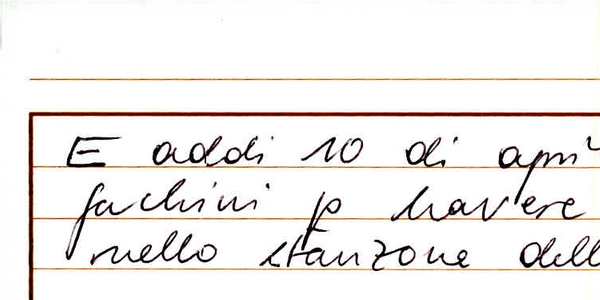 E addi 10 di apri
fachini p havere
nello stanzone dell